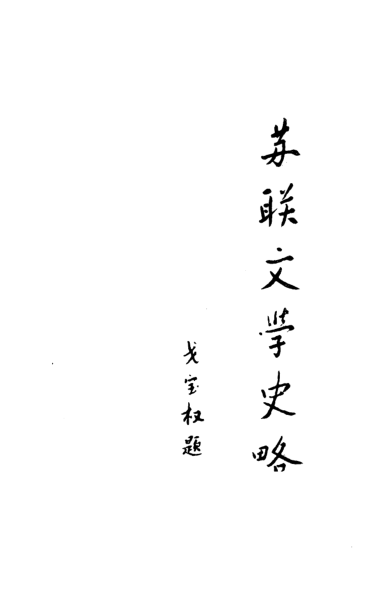 苏联文學史略
戈宝权题